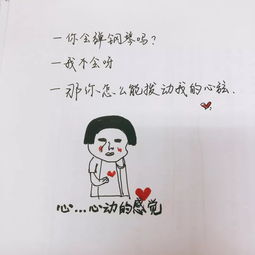 一你会弹钢琴吗?
一我不会呀
一那你怎么能拨动我的心弦.
心...心动的感觉